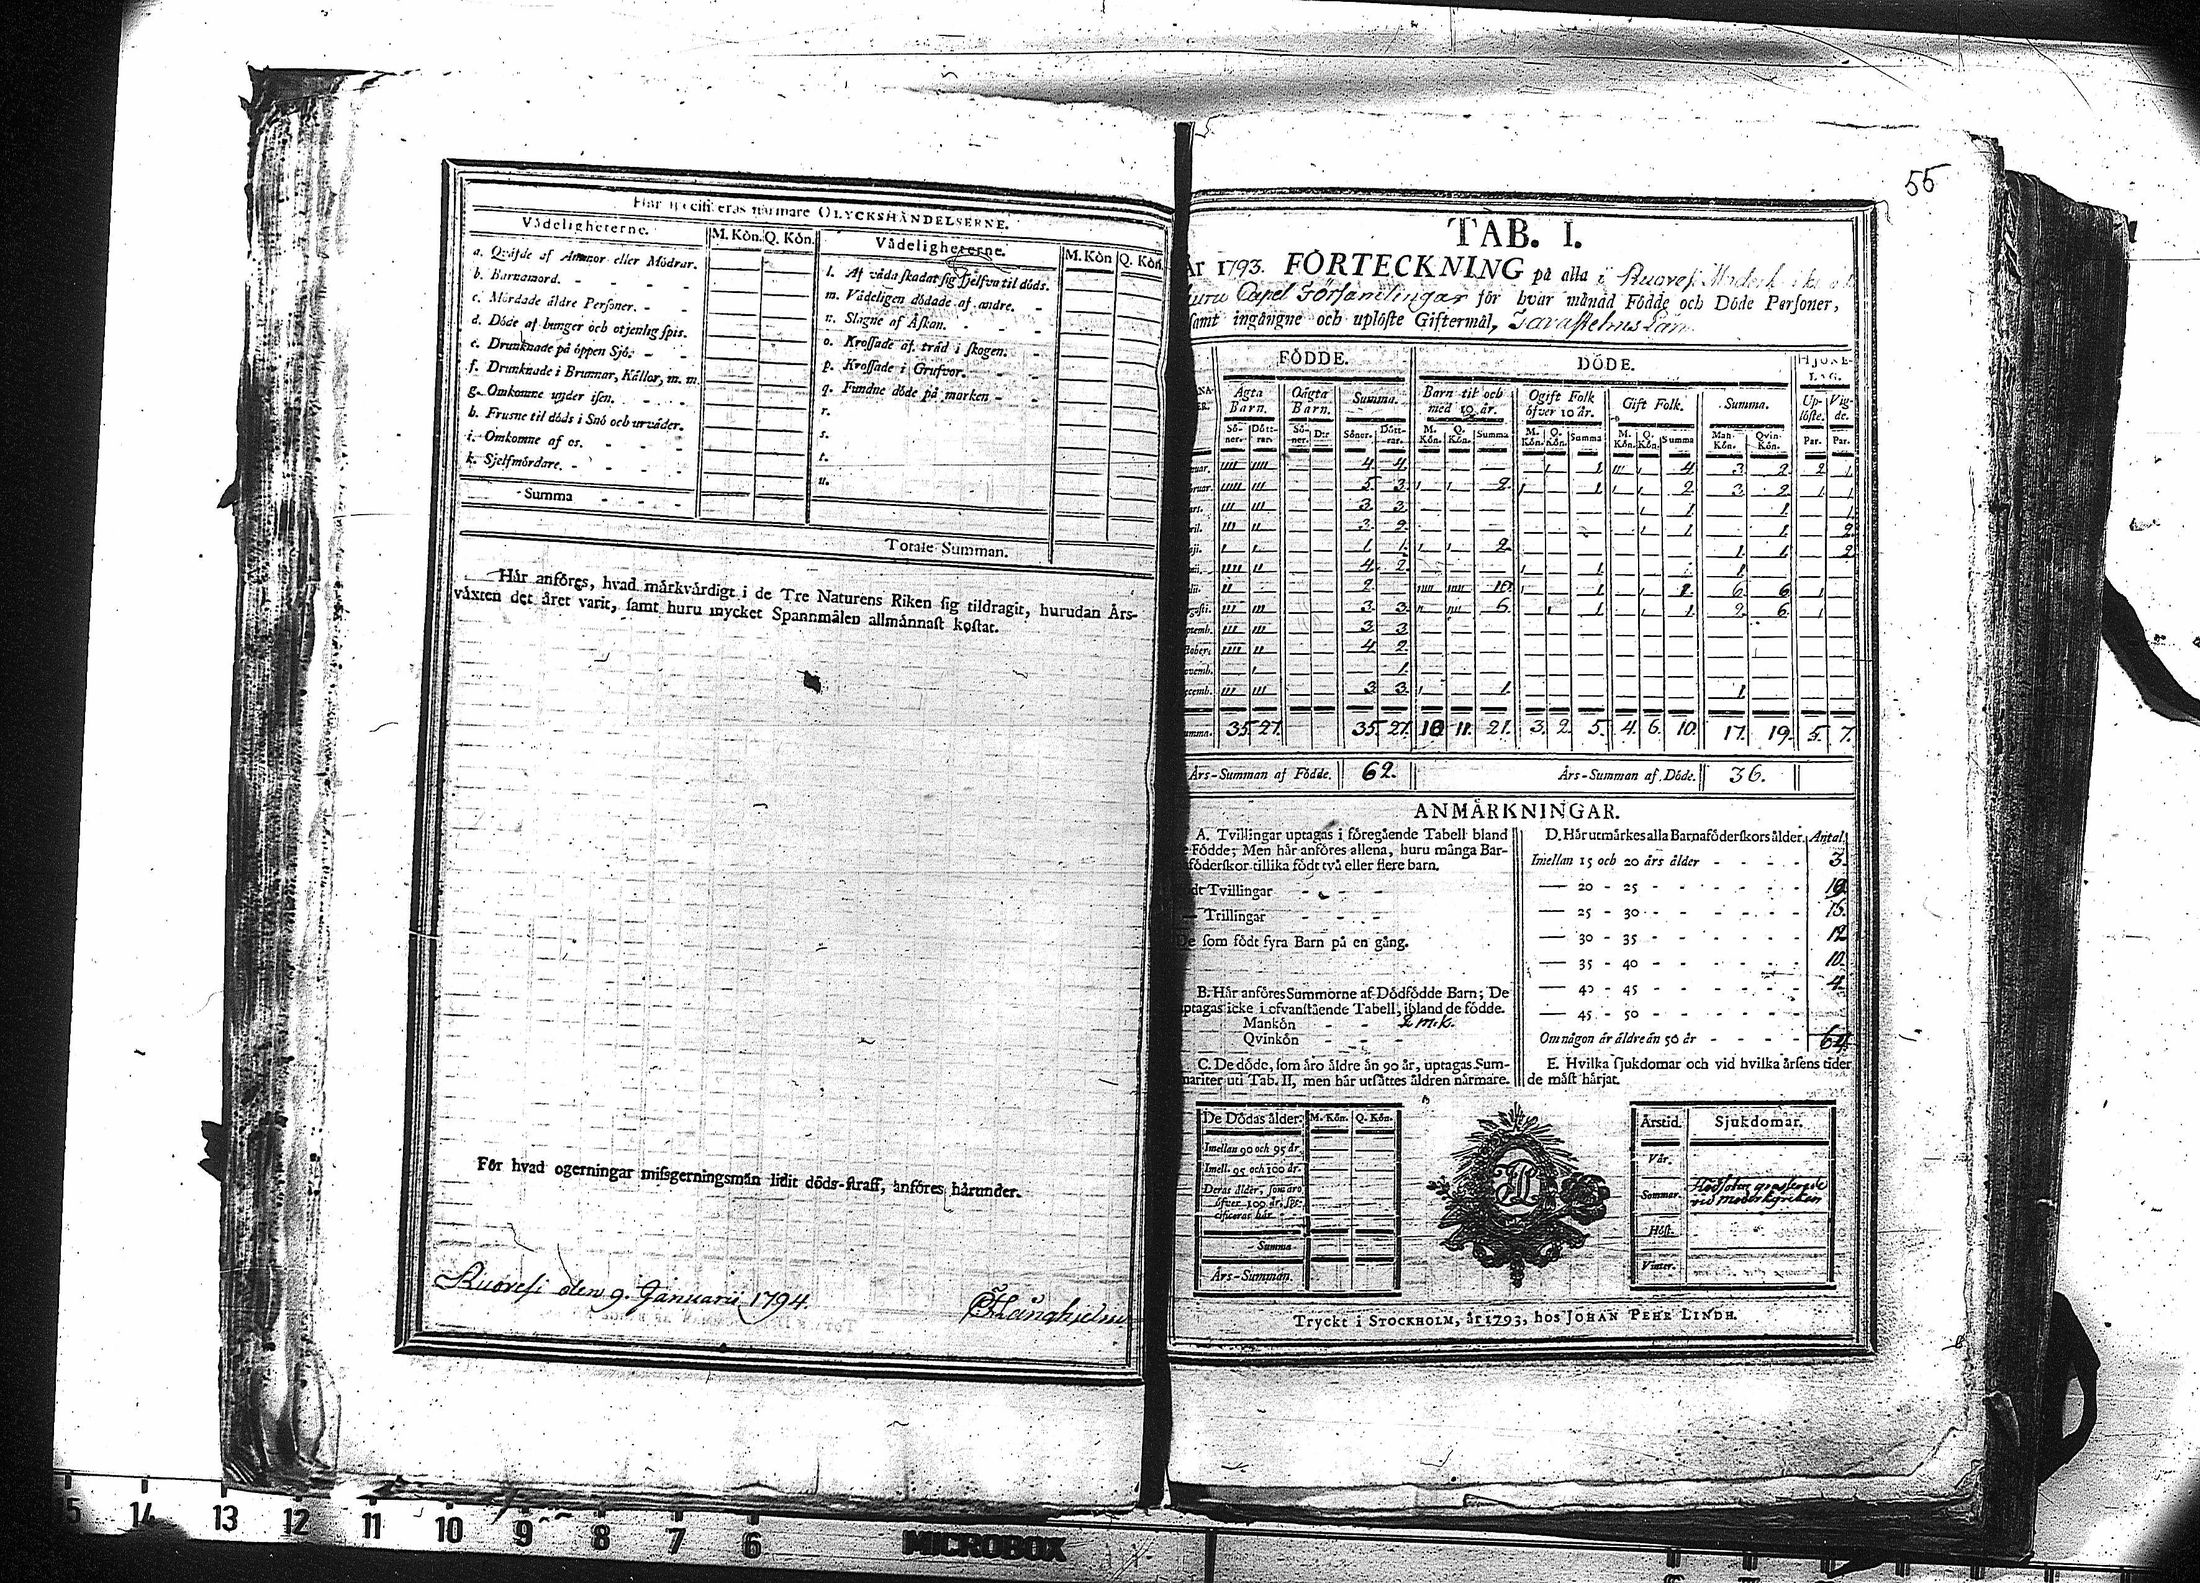 55
Här specificeras närmare OLYCKSHÄNDELSERNE.
Vådeligheterne. M. Kön. Q. Kön. Vådeligheterne. M. Kön Q. Kön.
a. Qväfde af Ammor eller Mödrar.
b. Barnamord.
c. Mördade äldre Personer.
d. Döde af hunger och otjenlig spis.
e. Drunknade på öppen Sjö.
f. Drunknade i Brunnar, Källor, m. m.
g. Omkomne under isen.
h. Frusne til döds i Snö och urväder.
i. Omkomne af os.
k. Sjelfmördare.
Summa
l. Af våda skadat sig sjelfva til döds.
m. Vådeligen dödade af andre.
n. Slagne af Åskan.
o. Krossade af träd i skogen.
p. Krossade i Grufvor.
q. Fundne döde på marken
r.
s.
t.
u.
Totale Summan.
Här anföres, hvad märkvärdigt i de Tre Naturens Riken sig tildragit, hurudan Års-
växten det året varit, samt huru mycket Spannmålen allmännast kostat.
För hvad ogerningar missgerningsmän lidit döds-straff, anföres härunder.
Ruovesi den 9. Januarii 1794.
TAB. I.
År 1793. FÖRTECKNING på alla i Ruovesi
Capel Församlingar för hvar månad Födde och Döde Personer,
samt ingångne och uplöste Giftermål, Tavastehus Län
FÖDDE. DÖDE. HJONE-
LAG.
Ägta Barn. Oägta Barn. Summa. Barn til och med 10 år. Ogift Folk öfver 10 år. Gift Folk. Summa. Up-löste. Vig-de.
Sö-ner. Dött-rar. Sö-ner. D:r Söner. Dött-rar. M. Kön. Q. Kön. Summa M. Kön. Q. Kön. Summa M. Kön. Q. Kön. Summa Man-Kön. Qvin-Kön. Par. Par.
uar. IIII IIII 4 4 I 1 III I 4 3 2 2 1
bruar. IIIII III 5 3 I I 2 I 1 I I 2 3 2 1 1
ars. III III 3 3 I 1 1 1
ril. III II 3 2 I 1 1 2
aji. I I 1 1 I I 2 1 1 2
nii. IIII II 4 2 I 1 1
ulii. II 2 10 I 1 6 6 1
gusti. III III 3 3 6 I 1 I 1 2 6 1
ptemb. III III 3 3
ctober. IIII II 4 2
ovemb. I 1
ecemb. III III 3 3 I 1 1
umma. 35 27 35 27 10 11 21. 3. 2. 5. 4. 6. 10. 17. 19. 5. 7.
Års-Summan af Födde. 62. Års-Summan af Döde. 36.
ANMÄRKNINGAR.
A. Tvillingar uptagas i föregående Tabell bland
e Födde; Men här anföres allena, huru många Bar-
föderskor tillika födt två eller flere barn.
dt Tvillingar
— Trillingar
De som födt fyra Barn på en gång.
B. Här anföres Summorne af Dödfödde Barn; De
ptagas icke i ofvanstående Tabell, ibland de födde.
Mankön 2 m.k.
Qvinkön
C. De döde, som äro äldre än 90 år, uptagas Sum-
mariter uti Tab. II, men här utsättes åldren närmare.
D. Här utmärkes alla Barnaföderskors ålder. Antal.
Imellan 15 och 20 års ålder 3.
— 20 - 25
— 25 - 30
— 30 - 35 12
— 35 - 40 10.
— 40 - 45 4.
— 45 - 50
Om någon är äldre än 50 år
E. Hvilka sjukdomar och vid hvilka årsens tider
de mäst härjat.
De Dödas ålder. M. Kön. Q. Kön.
Imellan 90 och 95 år.
Imell. 95 och 100 år.
Deras ålder, som äro
öfver 100 år, spe-
cificeras här
Summa
Års-Summan.
Årstid. Sjukdomar.
Vår.
Sommar. Rödsoten grasserade
vid moderkyrckan
Höst.
Vinter.
Tryckt i STOCKHOLM, år 1793, hos JOHAN PEHR LINDH.
15 14 13 12 11 10 9 8 7 6
MICROBOX